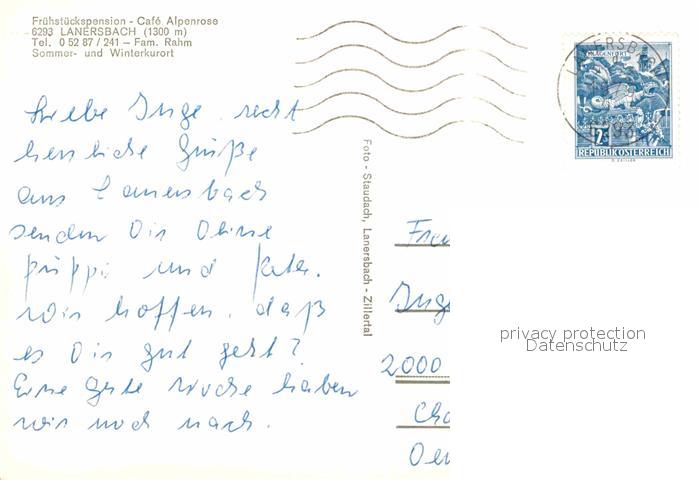 Frühstückspension - Café Alpenrose
6293 LANERSBACH (1300 m)
Tel. 0 52 87 / 241 – Fam. Rahm
Sommer- und Winterkurort
Liebe Inge, recht
herzliche Grüße
aus Lanersbach
senden Dir Deine
und Peter.
Wir hoffen, daß
es Dir gut geht?
Eine gute Woche haben
wir noch nach.
Foto - Staudach, Lanersbach - Zillertal
LANERSBACH
KLAGENFURT
2 S
REPUBLIK ÖSTERREICH
Frau
Inge
2000
privacy protection
Datenschutz